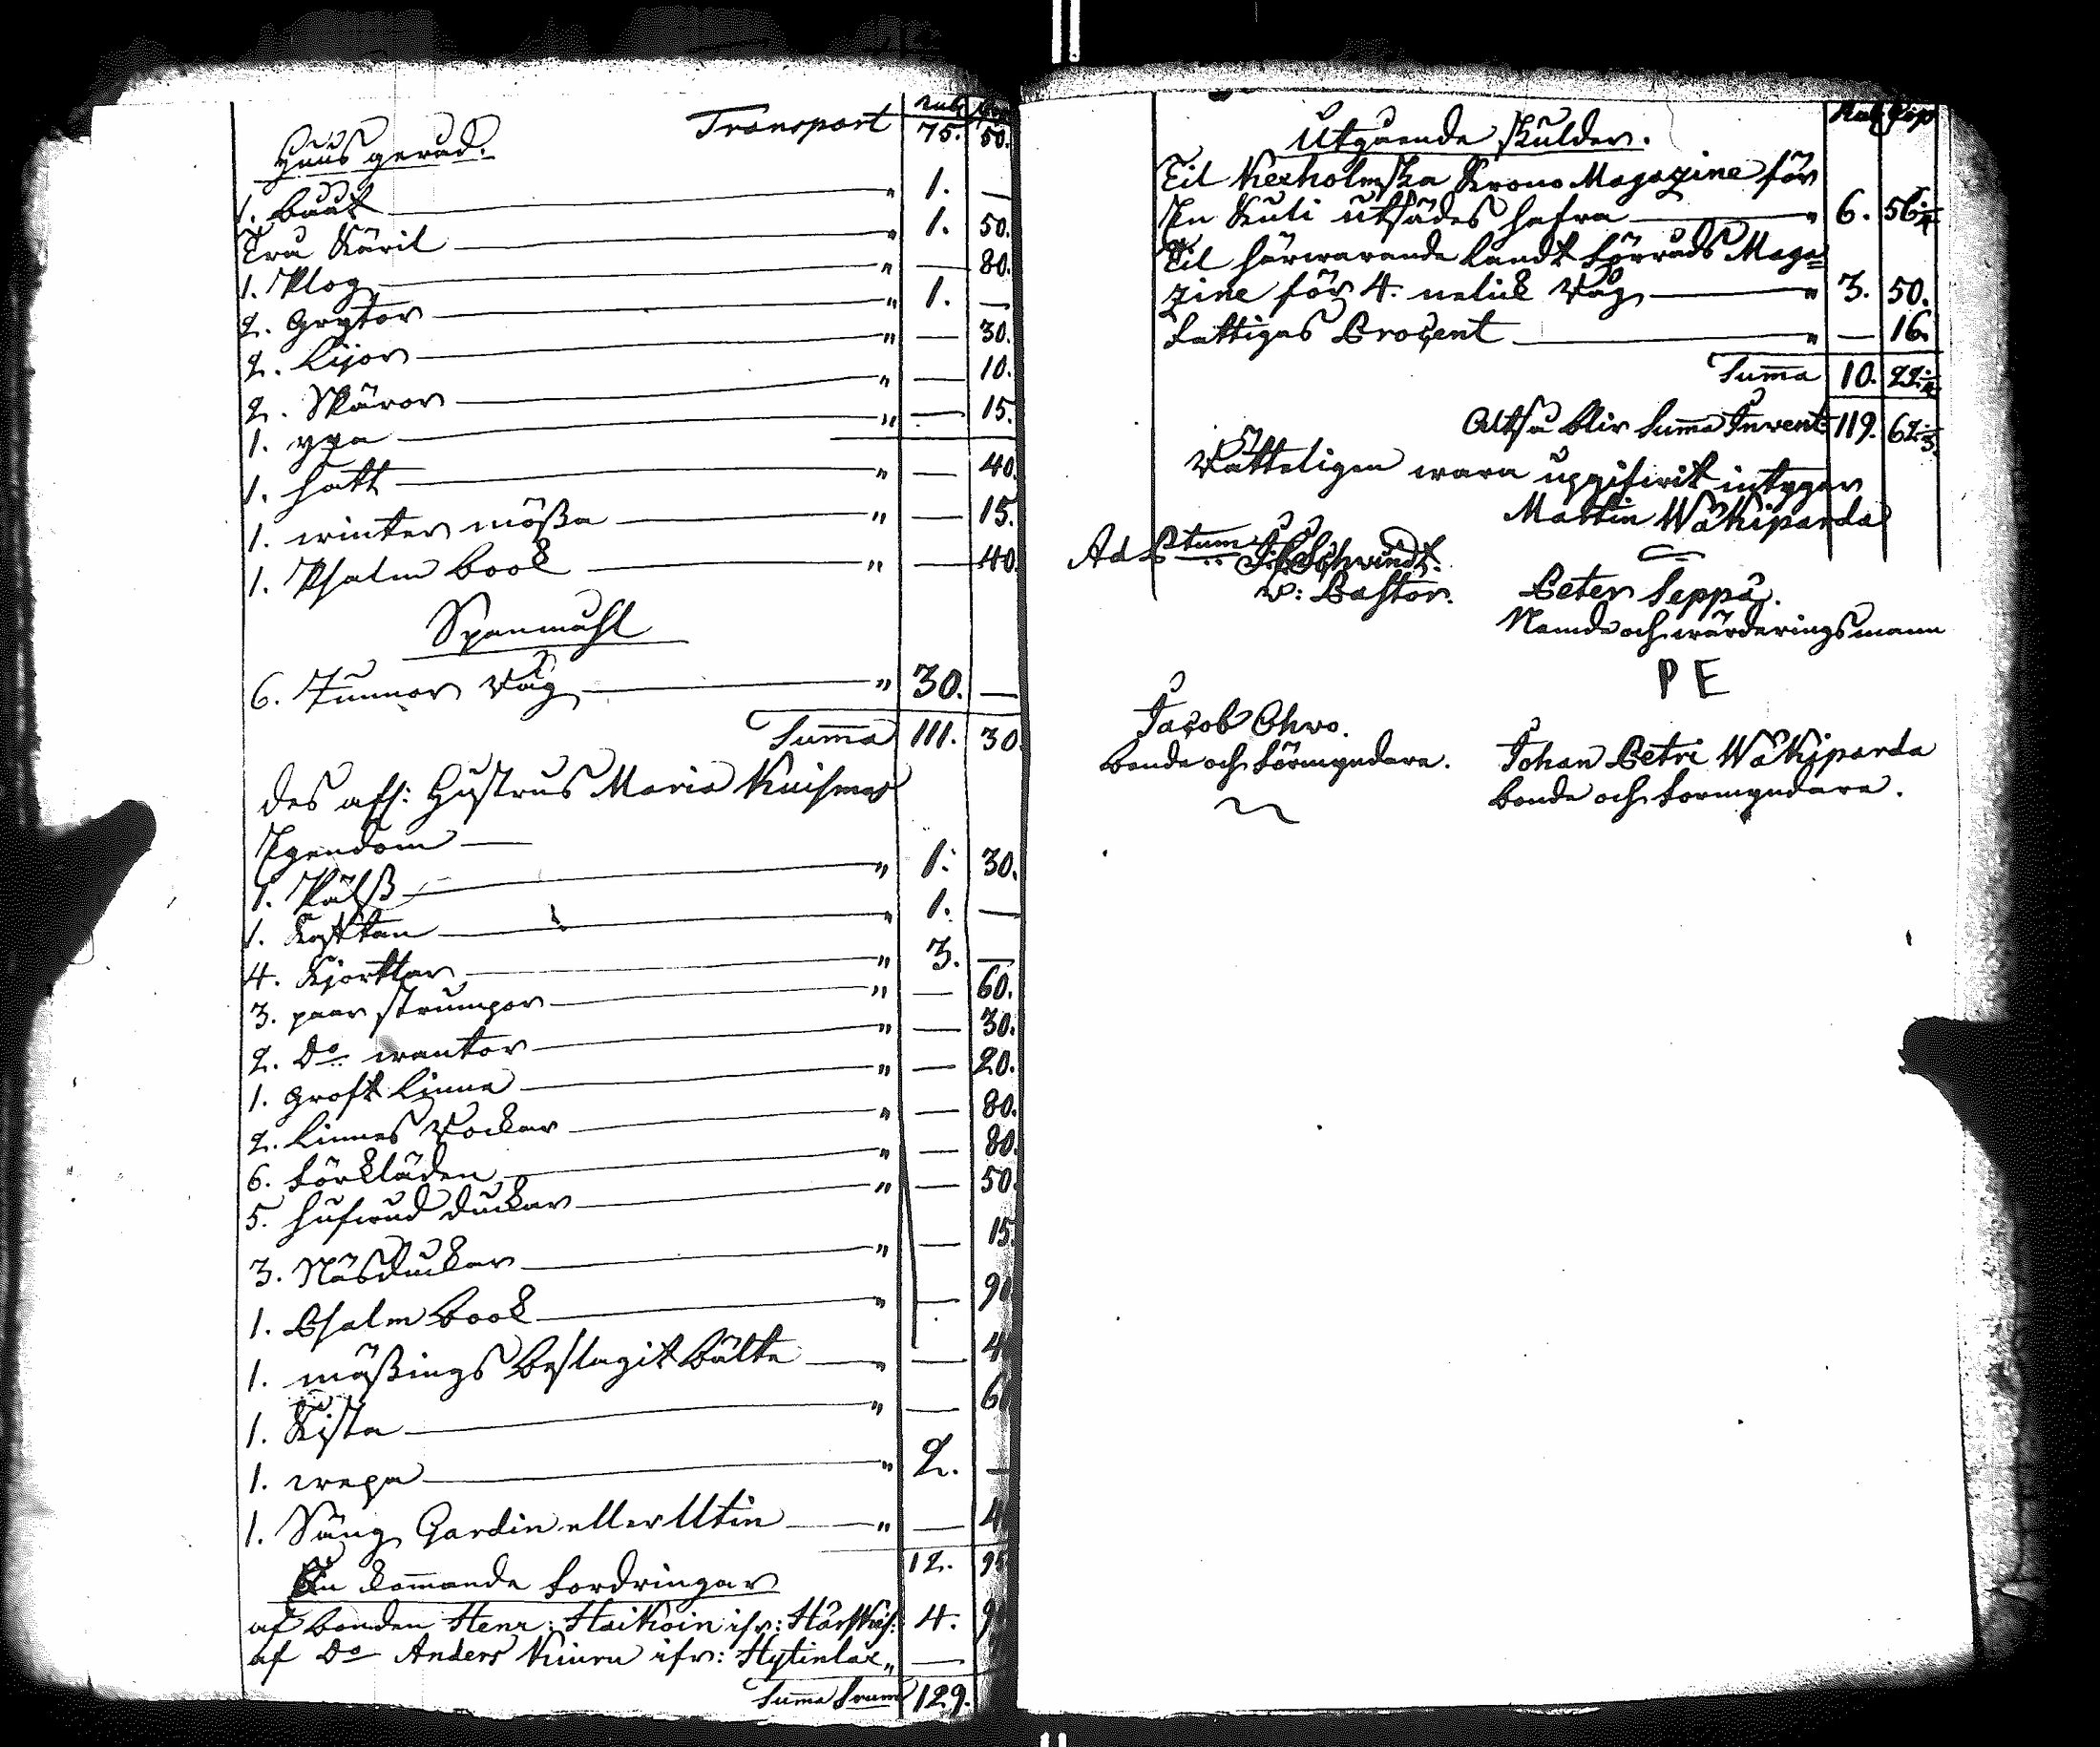 Rub Kop
Transport 75. 50.
Huus gerad.
1. baat " 1. —
Trä Käril " 1. 50.
1. Plog " — 80.
2. Grytor " 1. —
2. Lijor " — 30.
2. Skäror " — 10.
1. yxa " — 15.
1. hatt " — 40.
1. winter mößa " — 15.
1. Psalm book " — 40.
Spanmahl
6. Tunnor Råg " 30. —
Summa 111. 30
des afl: Hustrus Maria Kuismas
Egendom
1. Pälß " 1. 30.
1. Kofttan " 1. —
4. Kjorttlar " 3. —
3. paar strumpor " — 60.
2. Do wantor " — 30.
1. Groft Linne " — 20.
2. Linnes Rockar " — 80.
6. förkläden " — 80.
5. hufwud dukar " — 50.
3. Näsdukar " — 15.
1. Psalm book " — 90
1. mäßings beslagit bälte " — 4
1. Kista " — 6
1. wepa " 2. —
1. Säng Gardin eller Utin " — 4
12. 95
In kommande fordringar
af bonden Henr: Haikoin ifr: 4. 9
af Do Anders Kiuru ifr: Hytinlax " —
Summa Summ 129.
Rub Kop
Utgaende skulder.
Til Kexholmska Krono Magazine för
En Kuli utsädes hafra " 6. 56 1/4
Til härwarande Landt förråds Maga=
zine för 4. nelick Råg " 3. 50.
Fattigas Procent " — 16.
Summa 10. 22 1/4
Altså blir Summa Invent: 119. 62
Rätteligen wara uppgifwit intygar
Martin Wäkiparda
Ad Ptum Schwindt.
v: Pastor. Peter Seppä.
Nämde och wärderings mann
P E
Jacob Ohvo.
bonde och förmyndare. Johan Petri Wäkiparda
bonde och formyndare.